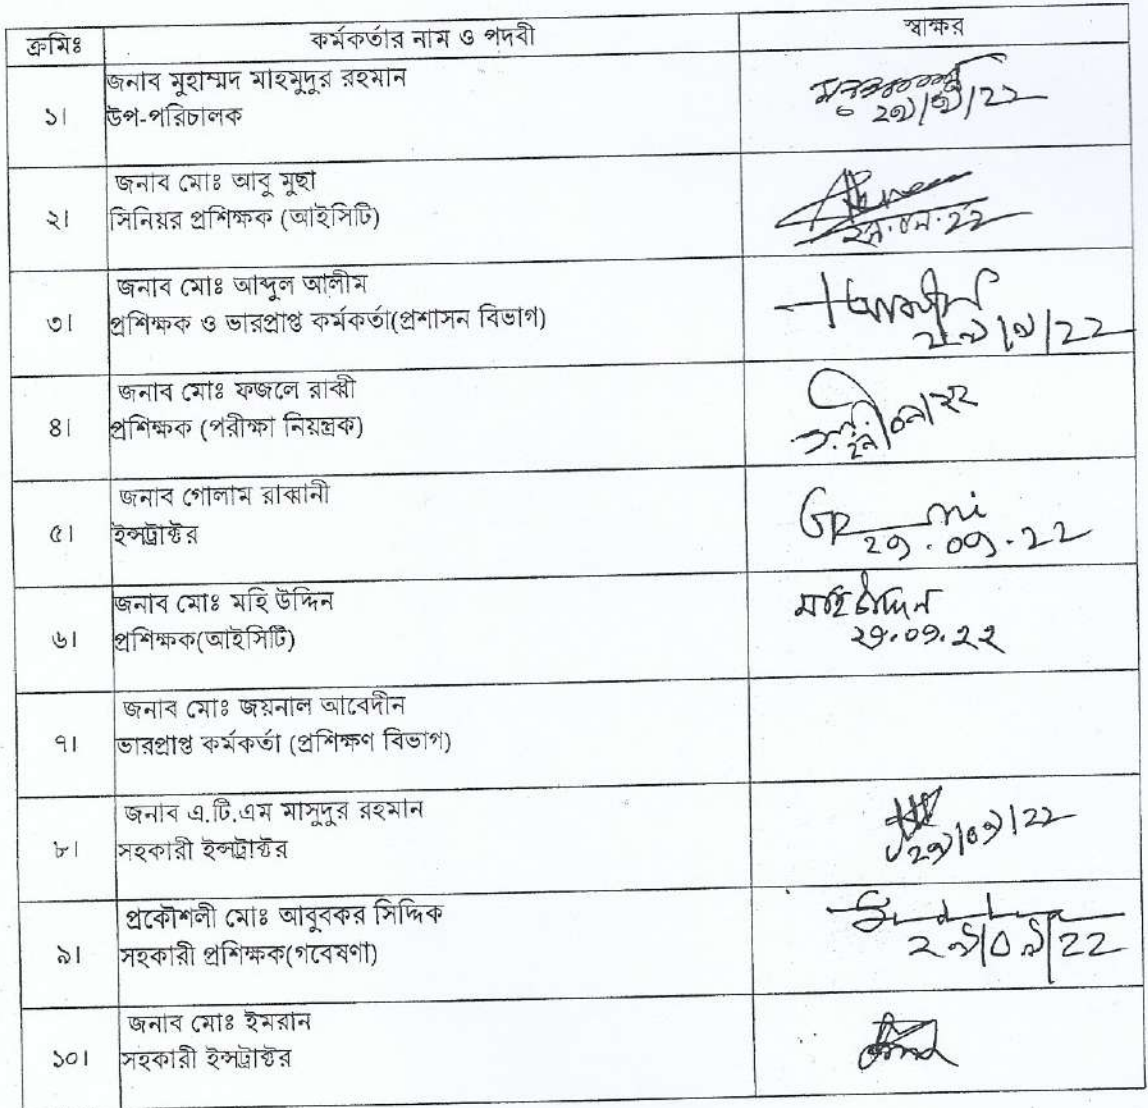 ক্রমিঃ কর্মকর্তার নাম ও পদবী স্বাক্ষর
জনাব মুহাম্মদ মাহমুদুর রহমান
১। উপ-পরিচালক
জনাব মোঃ আবু মুছা
২। সিনিয়র প্রশিক্ষক (আইসিটি)
জনাব মোঃ আব্দুল আলীম
৩। প্রশিক্ষক ও ভারপ্রাপ্ত কর্মকর্তা(প্রশাসন বিভাগ)
জনাব মোঃ ফজলে রাব্বী
৪। প্রশিক্ষক (পরীক্ষা নিয়ন্ত্রক)
জনাব গোলাম রাব্বানী
৫। ইন্সট্রাক্টর
29.09.22
জনাব মোঃ মহি উদ্দিন মহি উদ্দিন
৬। প্রশিক্ষক(আইসিটি) 29.09.22
জনাব মোঃ জয়নাল আবেদীন
৭। ভারপ্রাপ্ত কর্মকর্তা (প্রশিক্ষণ বিভাগ)
জনাব এ.টি.এম মাসুদুর রহমান
৮। সহকারী ইন্সট্রাক্টর 29/09/22
প্রকৌশলী মোঃ আবুবকর সিদ্দিক
৯। সহকারী প্রশিক্ষক(গবেষণা) 29/09/22
জনাব মোঃ ইমরান
১০। সহকারী ইন্সট্রাক্টর